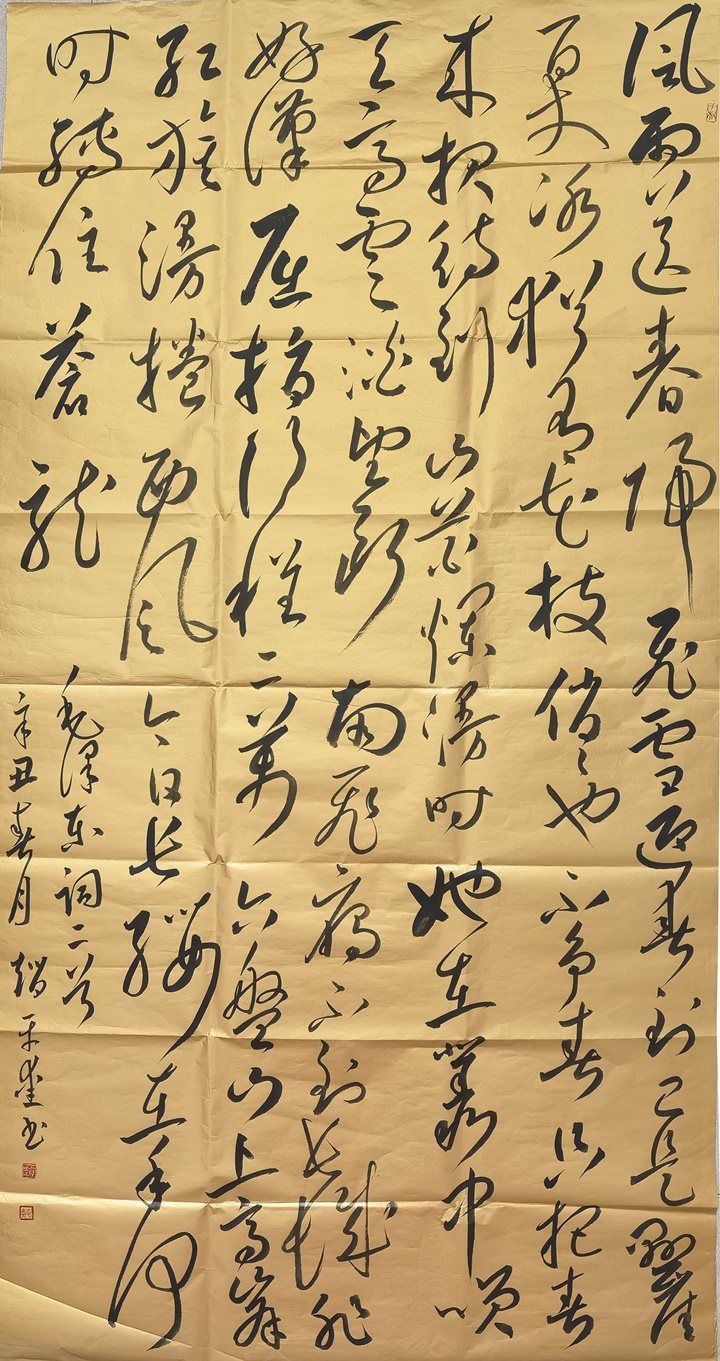 風雨送春歸飛雪迎春到已是懸崖
百丈冰猶有花枝俏々也不爭春只把春
來報待到山花爛漫時她在叢中咲
天高雲淡望斷南飛雁不到長城非
好漢屈指行程二萬六盤山上高峰
紅旗漫捲西風今日長纓在手何
時縛住蒼龍
毛澤東詞二首
辛丑春月趙书